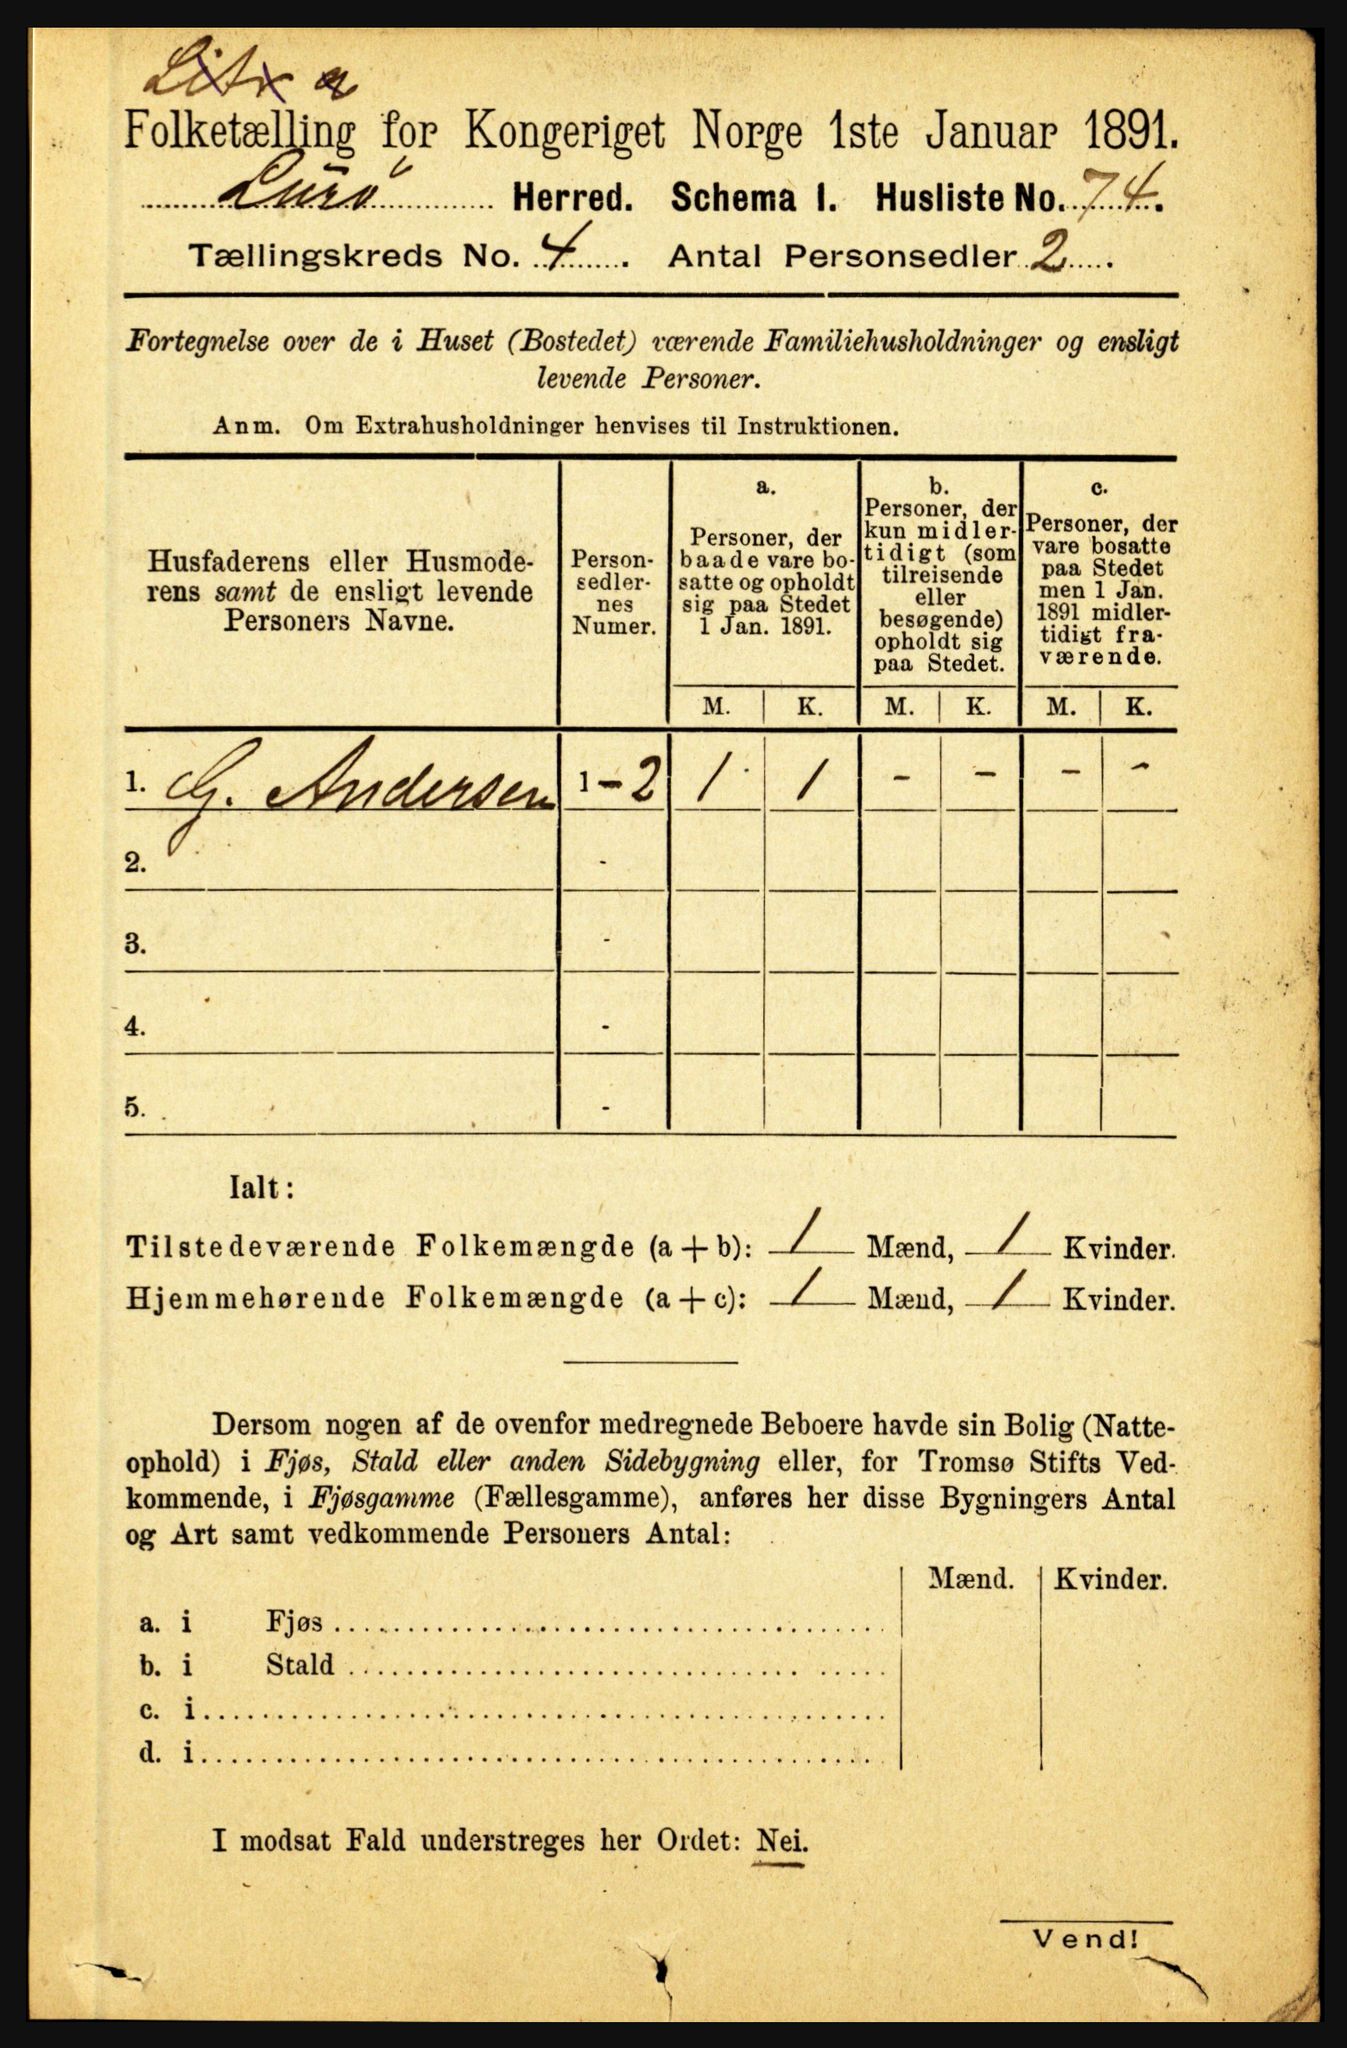 Litr a
Folketælling for Kongeriget Norge 1ste Januar 1891.
Lurö Herred. Schema 1. Husliste No. 74.
Tællingskreds No. 4. Antal Personsedler 2.
Fortegnelse over de i Huset (Bostedet) værende Familiehusholdninger og ensligt
levende Personer.
Anm. Om Extrahusholdninger henvises til Instruktionen.
Husfaderens eller Husmode-
rens samt de ensligt levende
Personers Navne.
Person-
sedler-
nes
Numer.
a.
Personer, der
baade vare bo-
satte og opholdt
sig paa Stedet
1 Jan. 1891.
b.
Personer, der
kun midler-
tidigt (som
tilreisende
eller
besøgende)
opholdt sig
paa Stedet.
c.
Personer, der
vare bosatte
paa Stedet
men 1 Jan.
1891 midler-
tidigt fra-
værende.
M. K. M. K. M. K.
1. G. Andersen 1-2 1 1 - - - -
2. -
3. -
4. -
5. -
Ialt:
Tilstedeværende Folkemængde (a + b): 1 Mænd, 1 Kvinder.
Hjemmehørende Folkemængde (a + c): 1 Mænd, 1 Kvinder.
Dersom nogen af de ovenfor medregnede Beboere havde sin Bolig (Natte-
ophold) i Fjøs, Stald eller anden Sidebygning eller, for Tromsø Stifts Ved-
kommende, i Fjøsgamme (Fællesgamme), anføres her disse Bygningers Antal
og Art samt vedkommende Personers Antal:
Mænd. Kvinder.
a. i Fjøs
b. i Stald
c. i
d. i
I modsat Fald understreges her Ordet: Nei.
Vend!